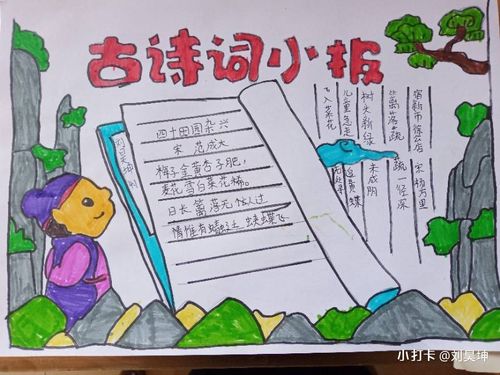 古诗词小报
四十田园杂兴
宋 范成大
梅子金黄杏子肥,
麦花雪白菜花稀。
日长篱 人过
惟有蜻 蛱蝶飞
刘昊坤
宿新市徐公店 宋 杨万里
篱落疏疏一径深
树头新绿未成阴
儿童急走追黄蝶
飞入菜花
小打卡 @刘昊坤